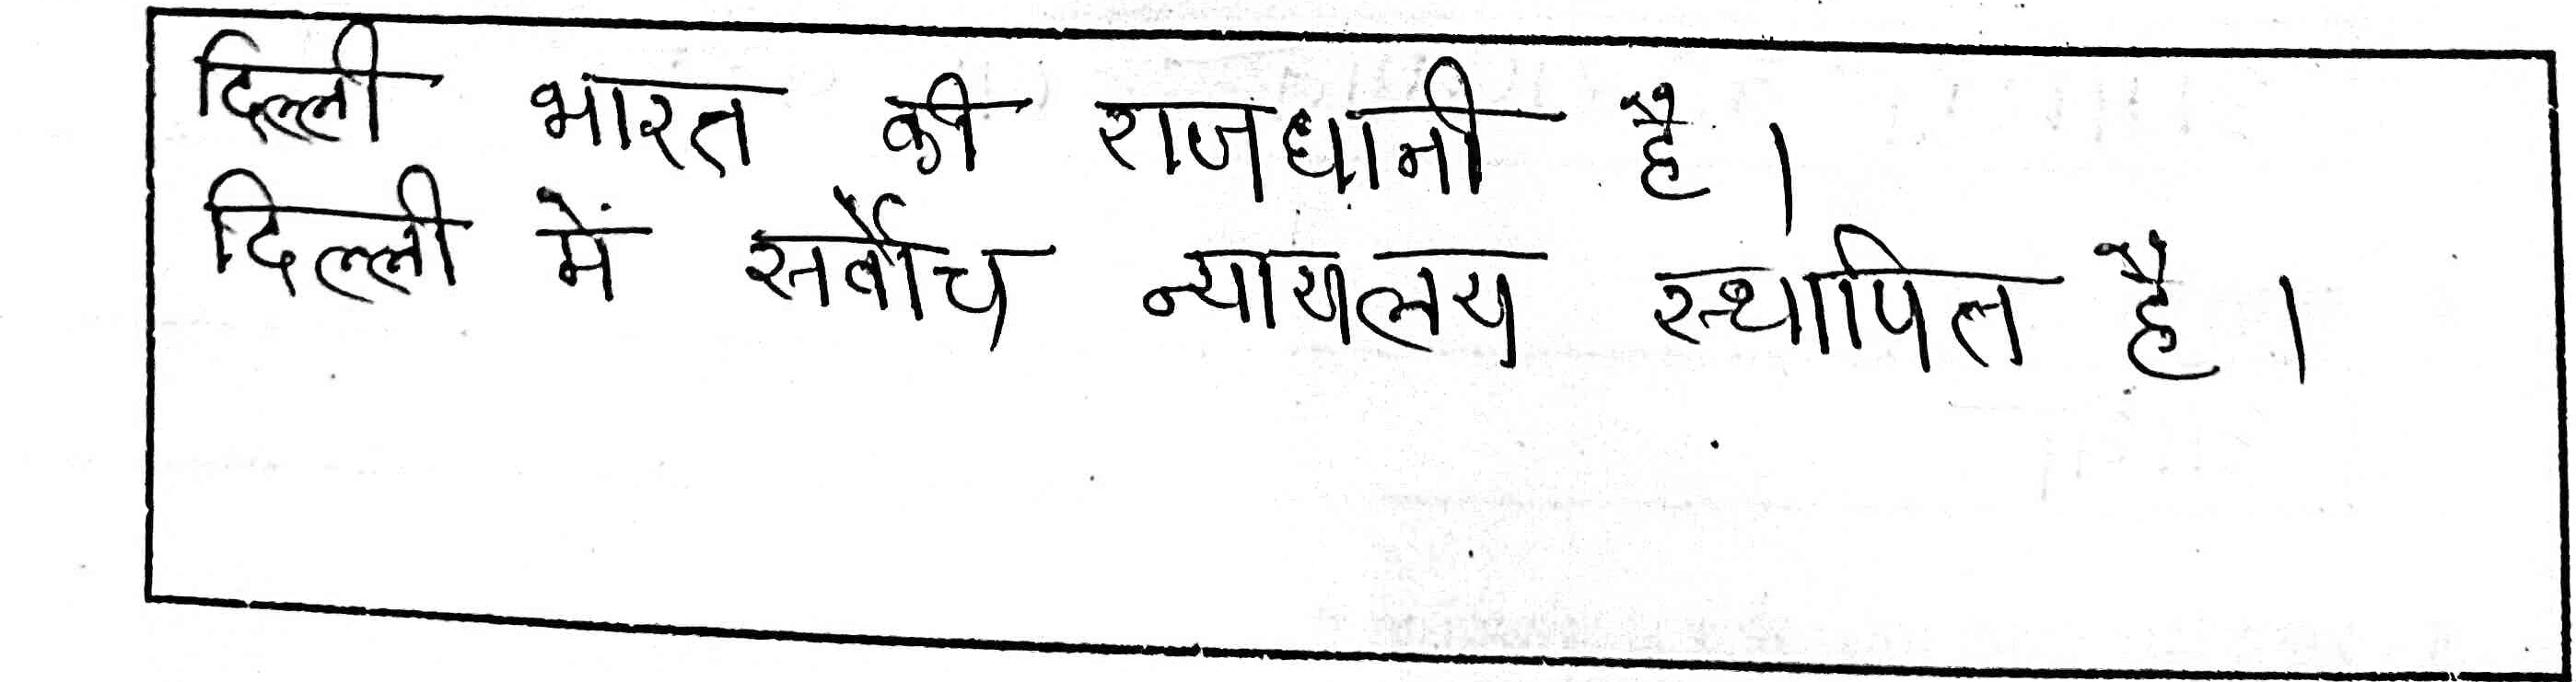 दिल्ली भारत की राजधानी है।
दिल्ली में सर्वोच न्यायलय स्थापित है।